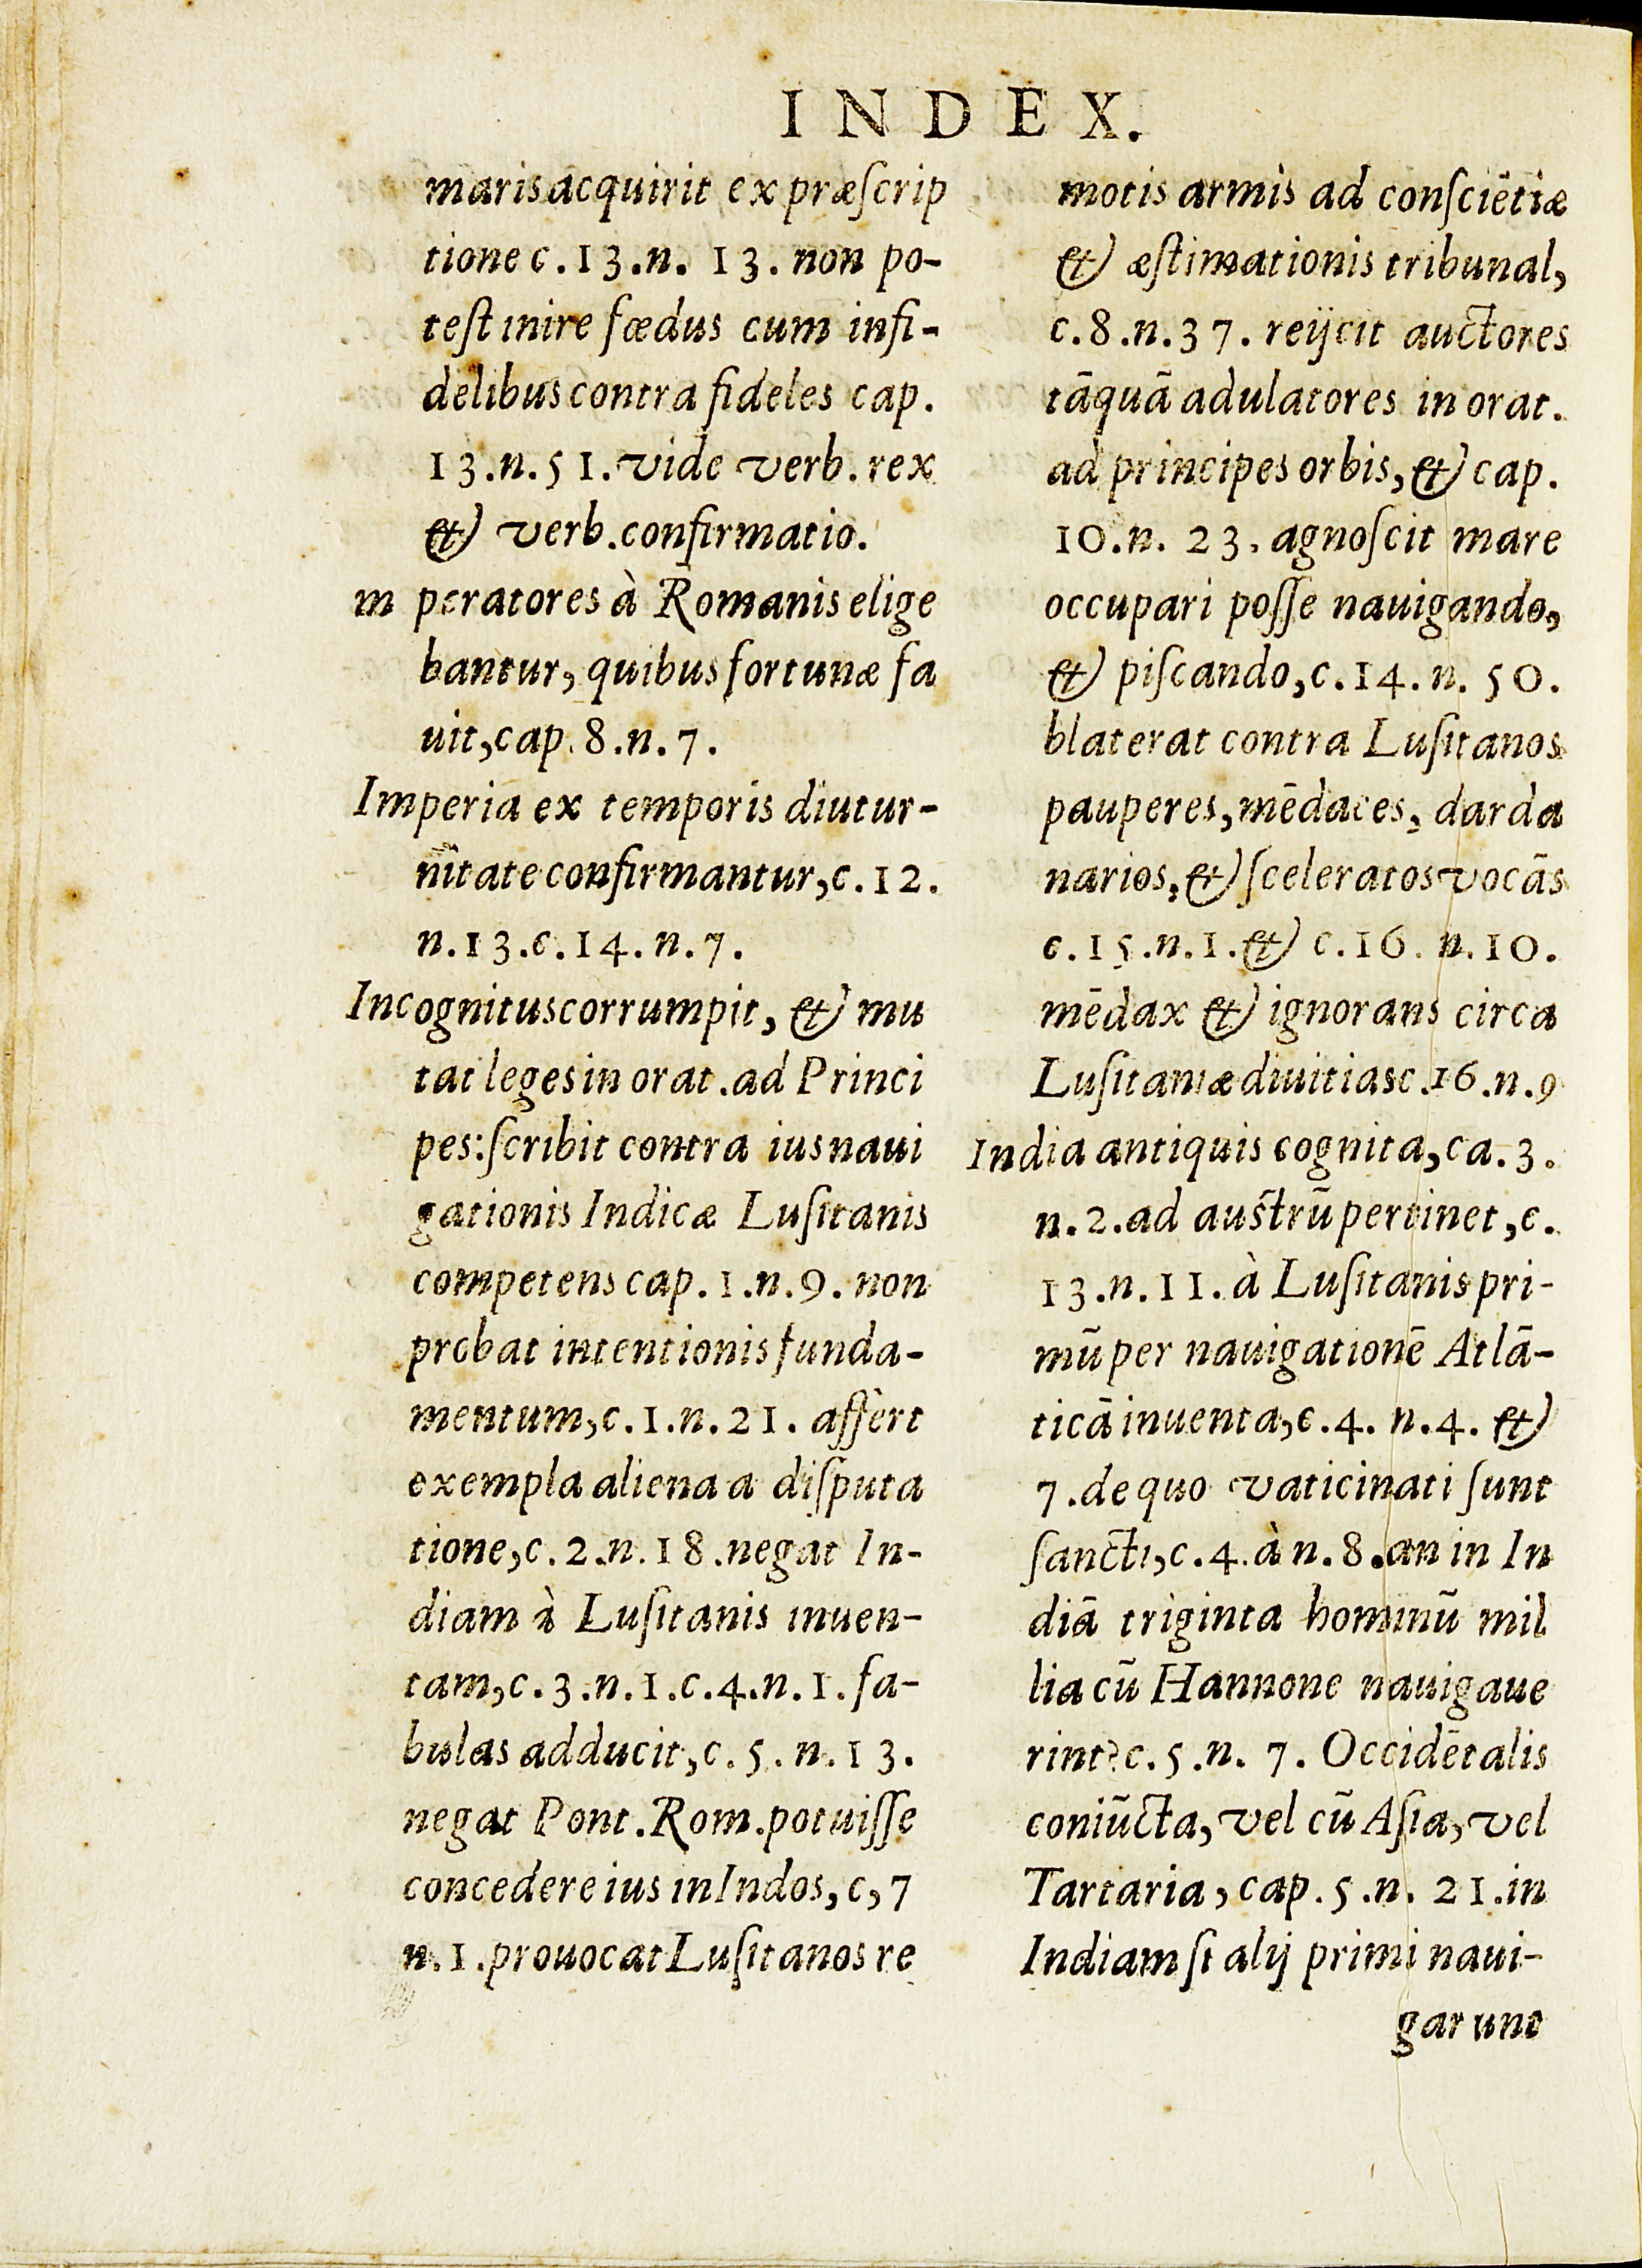 INDEX.
maris acquirit ex præſcrip
tione c.13.n. 13. non po-
teſt inire fœdus cum infi-
delibus contra fideles cap.
13.n.51. vide verb. rex
& verb. confirmatio.
m peratores à Romanis elige
bantur, quibus fortunæ fa
uit, cap. 8.n.7.
Imperia ex temporis diutur-
nitate confirmantur, c.12.
n.13.c.14.n.7.
Incognitus corrumpit, & mu
tat leges in orat. ad Princi
pes: ſcribit contra ius naui
gationis Indicæ Luſitanis
competens cap.1.n.9. non
probat intentionis funda-
mentum, c.1.n.21. affert
exempla aliena a diſputa
tione, c.2.n.18. negat In-
diam à Luſitanis inuen-
tam, c.3.n.1.c.4.n.1. fa-
bulas adducit, c.5.n.13.
negat Pont. Rom. potuiſſe
concedere ius in Indos, c,7
n.1. prouocat Luſitanos re
motis armis ad conſciētiæ
& æſtimationis tribunal,
c.8.n.37. reijcit auctores
tāquā adulatores in orat.
ad principes orbis, & cap.
10.n. 23. agnoſcit mare
occupari poſſe nauigando,
& piſcando, c.14.n.50.
blaterat contra Luſitanos
pauperes, mēdaces, darda
narios, & ſceleratos vocās
c.15.n.1. & c.16.n.10.
mēdax & ignorans circa
Luſitaniæ diuitias c.16.n.9
India antiquis cognita, ca.3.
n.2. ad auſtrū pertinet, c.
13.n.11. à Luſitanis pri-
mū per nauigationē Atlā-
ticā inuenta, c.4. n.4. &
7. de quo vaticinati ſunt
ſancti, c.4. à n.8. an in In
diā triginta hominū mil
lia cū Hannone nauigaue
rint? c.5.n. 7. Occidētalis
coniūcta, vel cū Aſia, vel
Tartaria, cap.5.n. 21. in
Indiam ſi alij primi naui-
garunt